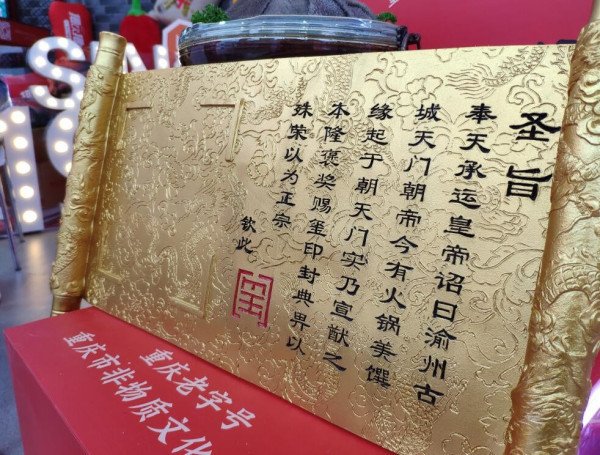 圣旨
奉天承运皇帝诏曰渝州古
城天门朝帝今有火锅美馔
缘起于朝天门实乃宣猷之
本隆褒奖赐玺印封典畀以
殊荣以为正宗
钦此
重庆老字号
重庆市非物质文化